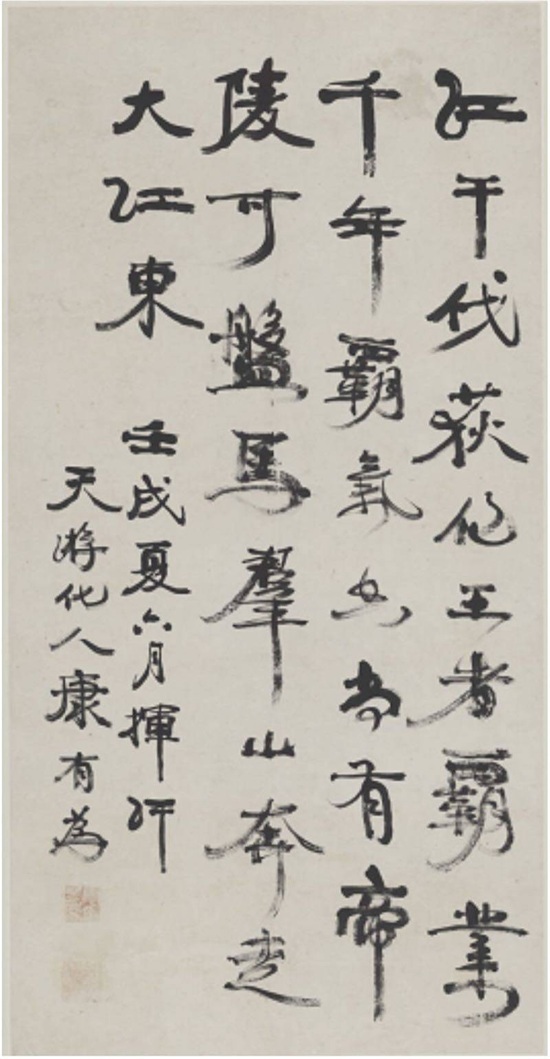 江干伐荻作王者霸業
千年霸氣尚有帝
陵可盤馬羣山奔走
大江東
壬戌夏六月揮汗
天游化人康有為